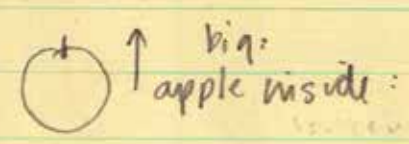 big:
apple inside: